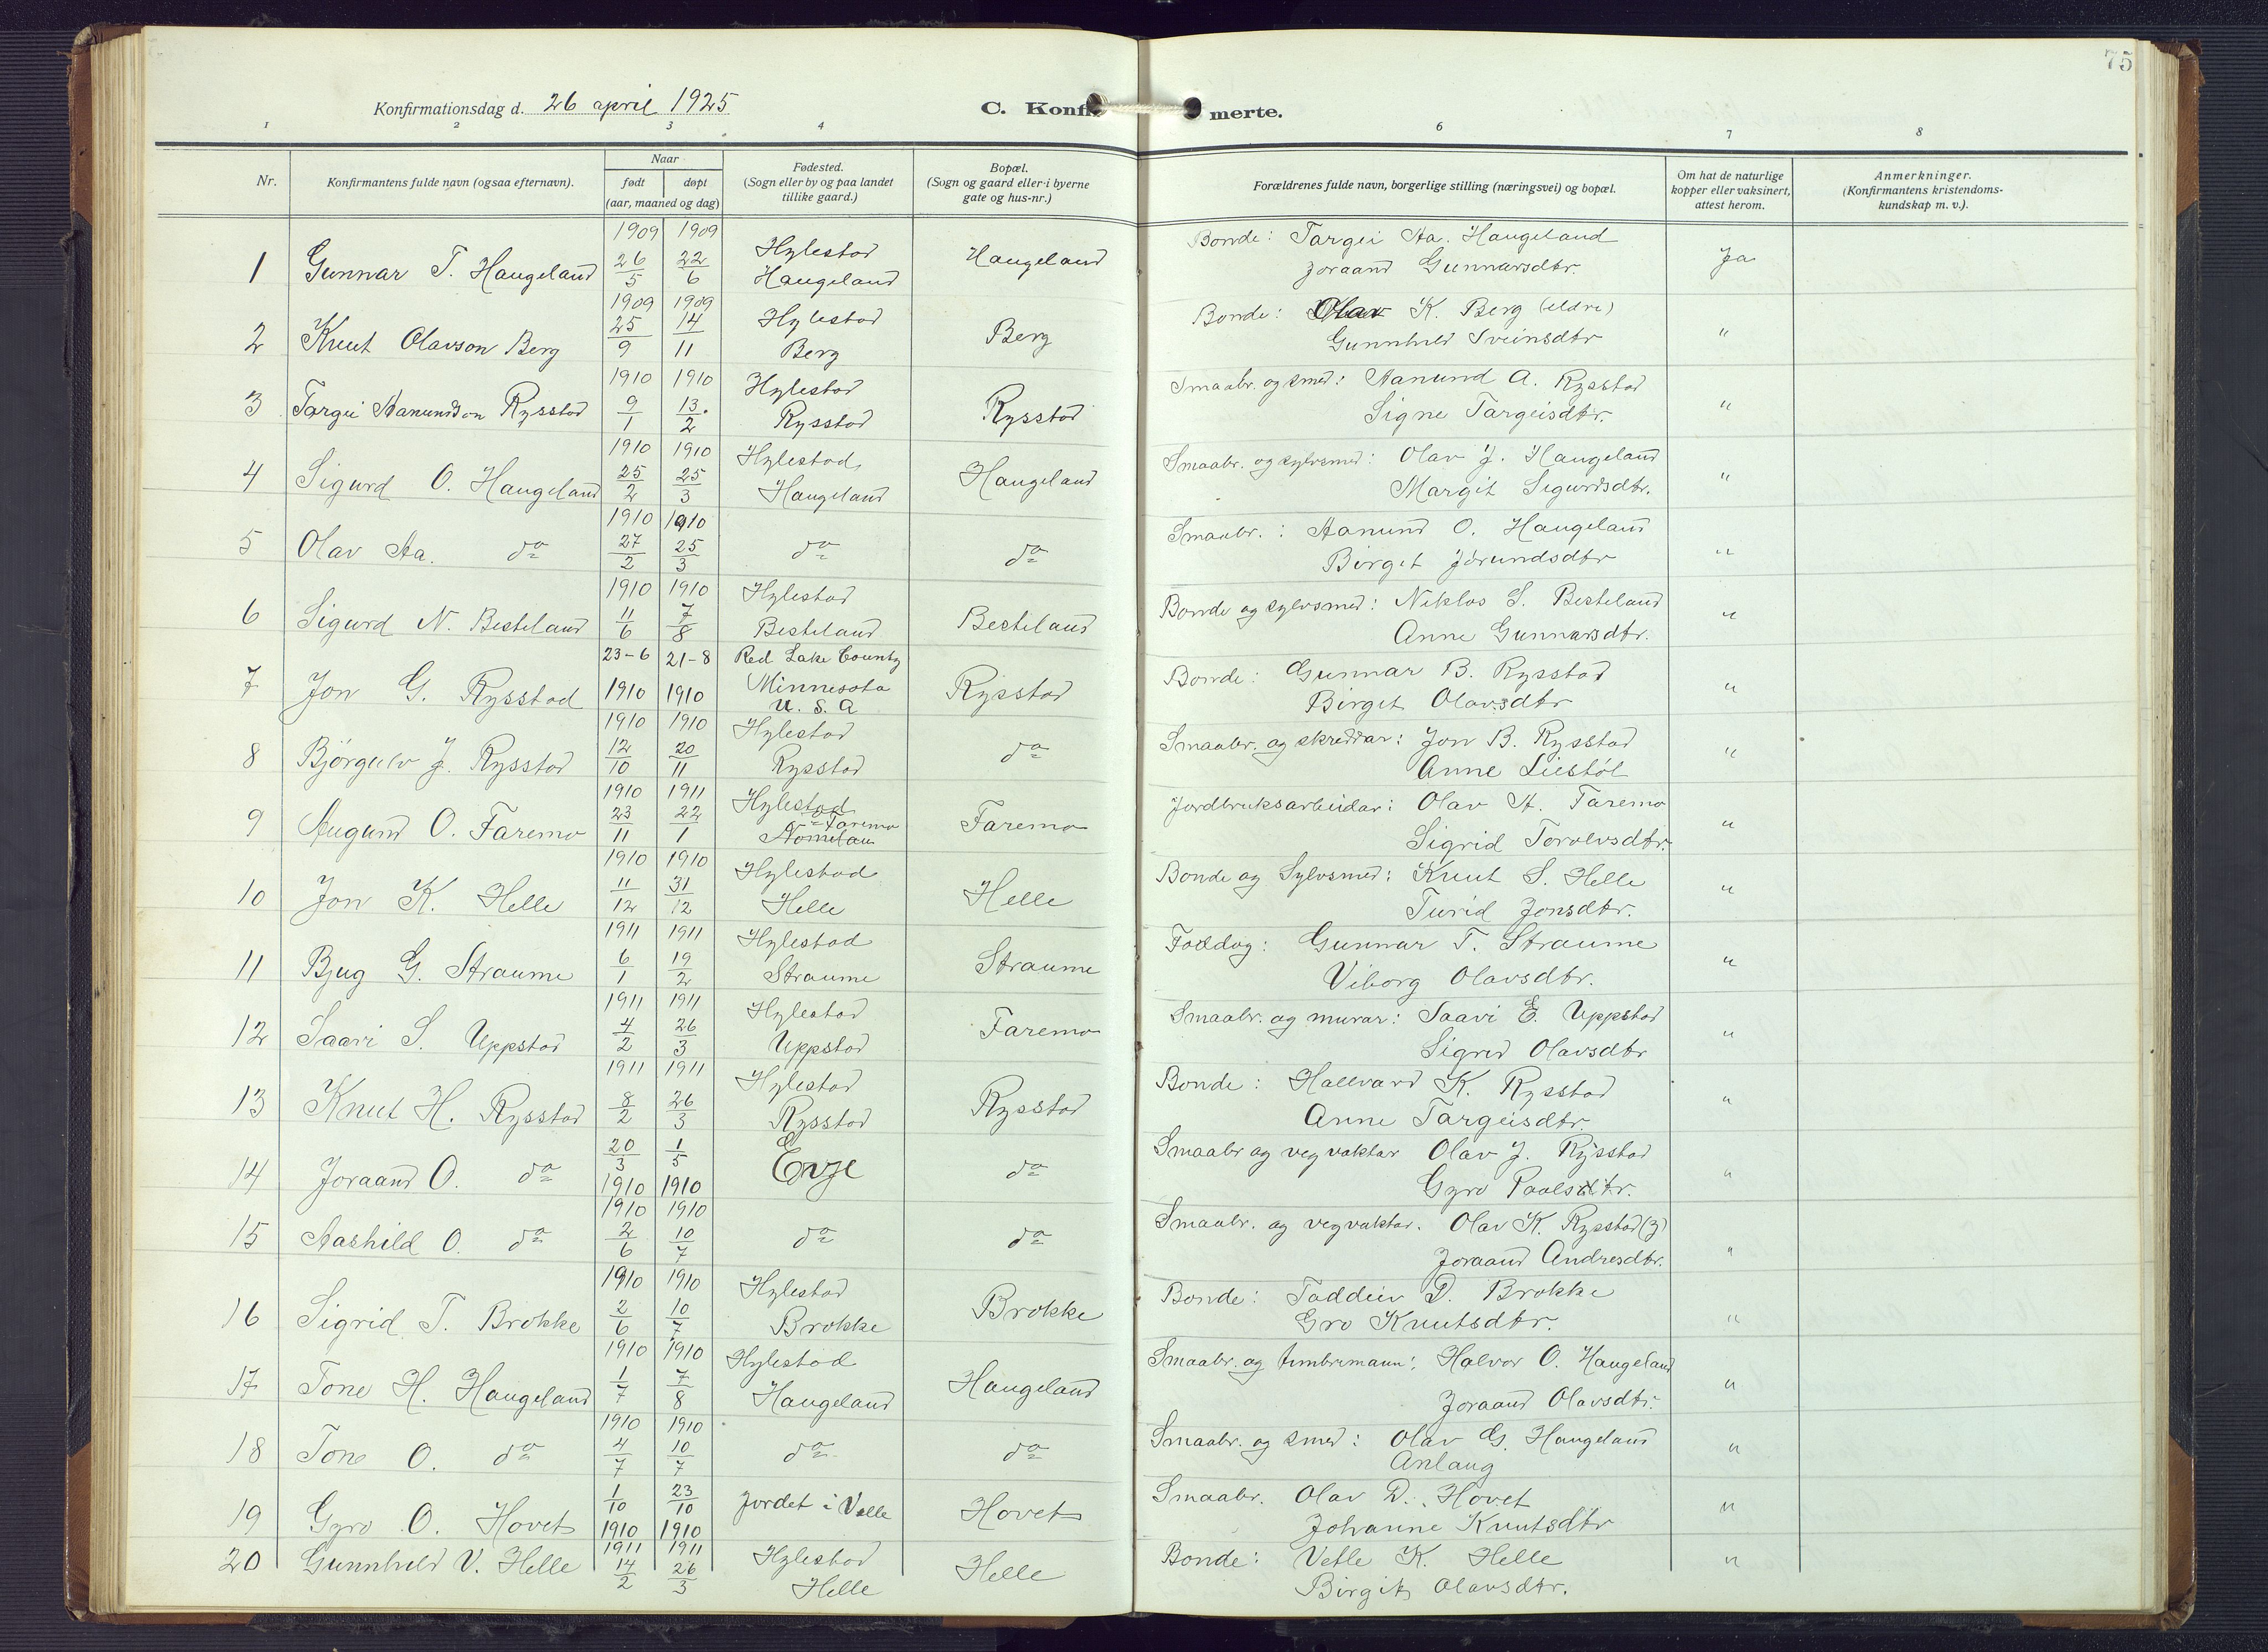 75
Konfirmationsdag d. 26 april 1925
C. Konfir
merte.
1 2 3 4 6 7 8
Nr.
Konfirmantens fulde navn (ogsaa efternavn).
Naar
født døpt
(aar, maaned og dag)
Fødested.
(Sogn eller by og paa landet
tillike gaard.)
Bopæl.
(Sogn og gaard eller i byerne
gate og hus-nr.)
Forældrenes fulde navn, borgerlige stilling (næringsvei) og bopæl.
Om hat de naturlige
kopper eller vaksinert,
attest herom.
Anmerkninger.
(Konfirmantens kristendoms-
kundskap m. v.).
1909 1909 Hylestad Bonde: Targei Aa. Haugeland
1 Gunnar T. Haugeland 26/5 22/6 Haugeland Haugeland Joraand Gunnarsdtr. Ja
1909 1909 Hylestad Bonde: Olav K. Berg (eldre)
2 Knut Olavson Berg 25/9 14/11 Berg Berg Gunnhild Sveinsdtr "
1910 1910 Hylestad Smaabr. og smed: Aanund A. Rysstad
3 Targei Aanundson Rysstad 9/1 13/2 Rysstad Rysstad Signe Targeisdtr. "
1910 1910 Hylestad Smaabr. og sylvsmed: Olav J. Haugeland
4 Sigurd O. Haugeland 25/2 25/3 Haugeland Haugeland Margit Sigurdsdtr. "
1910 1910 Smaabr.: Aanund O. Haugeland
5 Olav Aa. do 27/2 25/3 do do Birget Jorundsdtr "
1910 1910 Hylestad Bonde og sylvsmed: Niklos S. Besteland
6 Sigurd N. Besteland 11/6 7/8 Besteland Besteland Anne Gunnarsdtr. "
23-6 21-8 Red Lake County Bonde: Gunnar B. Rysstad
7 Jon G. Rysstad 1910 1910 Minnesota Rysstad Birget Olavsdtr "
U. S. A
1910 1910 Hylestad Smaabr. og skreddar: Jon B. Rysstad
8 Bjørgulv J. Rysstad 12/10 20/11 Rysstad do Anne Liestøl "
1910 1911 Hylestad Jordbruksarbeidar: Olav A. Faremo
9 Augund O. Faremo 23/11 22/1 Faremo Faremo Sigrid Torolvsdtr. "
1910 1910 Hylestad Bonde og Sylvsmed: Knut S. Helle
10 Jon K. Helle 11/12 31/12 Helle Helle Turid Jonsdtr. "
1911 1911 Hylestad Foddog: Gunnar T. Straume
11 Bjug G. Straume 6/1 19/2 Straume Straume Viborg Olavsdtr. "
1911 1911 Hylestad Smaabr. og murar: Saavi E. Uppstad
12 Saavi S. Uppstad 4/2 26/3 Uppstad Faremo Sigrid Olavsdtr "
1911 1911 Hylestad Bonde: Hallvard K. Rysstad
13 Knut H. Rysstad 8/2 26/3 Rysstad Rysstad Anne Targeisdtr. "
20/3 1/5 Smaabr og vegvaktar Olav J. Rysstad
14 Joraand O. do 1910 1910 Evje do Gyro Paalsdtr. "
1910 1910 Smaabr. og vegvaktar. Olav K. Rysstad (y)
15 Aashild O. do 2/6 10/7 do do Joraand Andresdtr. "
1910 1910 Hylestad Bonde: Taddeiv D. Brokke
16 Sigrid T. Brokke 2/6 10/7 Brokke Brokke Gro Knutsdtr. "
1910 1910 Hylestad Smaabr. og tumbremann: Halvor O. Haugeland
17 Tone H. Haugeland 1/7 7/8 Haugeland Haugeland Joraand Olavsdtr. "
1910 1910 Smaabr. og smed: Olav G. Haugeland
18 Tone O. do 4/7 10/7 do do Anlaug "
1/10 23/10 Jordet i Valle Smaabr. Olav D. Hovet
19 Gyro O. Hovet 1910 1910 Hovet Johanne Knutsdtr "
1911 1911 Hylestad Bonde: Vetle K. Helle
20 Gunnhild V. Helle 14/2 26/3 Helle Helle Birgit Olavsdtr. "